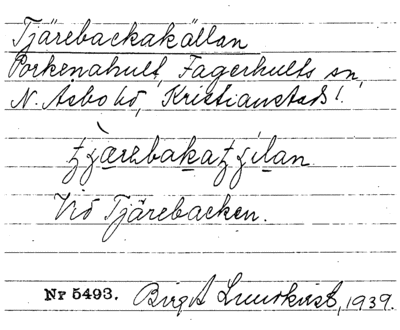 Tjärebackakällan
Porkenahult, Fagerhults sn,
N. Åsbo hd, Kristianstads l.
Vid Tjärebacken.
Nr 5493. Birgit Lundkvist, 1939.